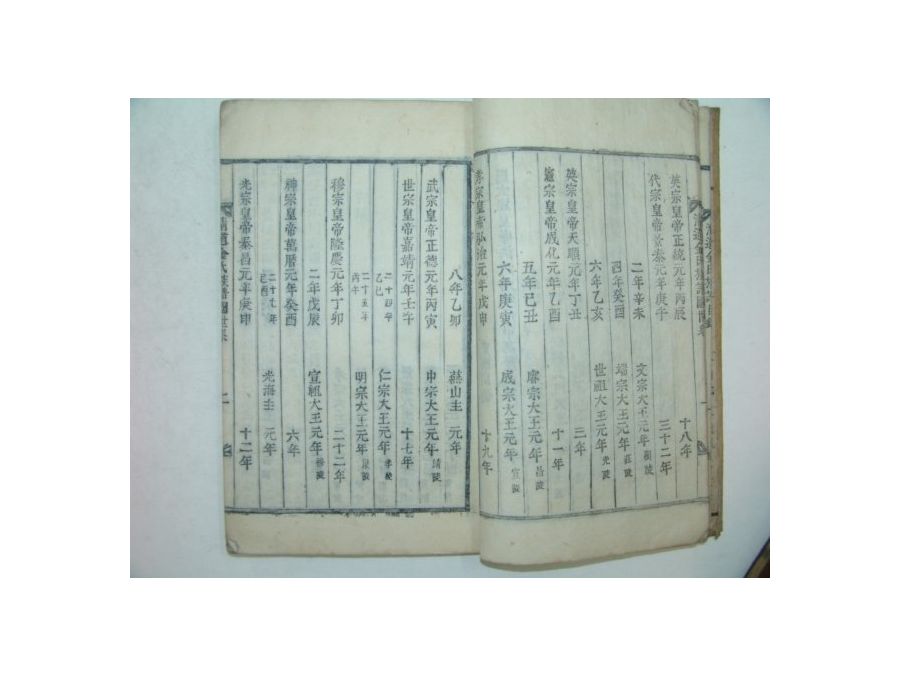 英宗皇帝正統元年丙辰 十八年
代宗皇帝景泰元年庚午 三十二年
二年辛未 文宗大王元年顯陵
四年癸酉 端宗大王元年莊陵
六年乙亥 世祖大王元年光陵
英宗皇帝天順元年丁丑 三年
憲宗皇帝成化元年乙酉 十一年
五年己丑 睿宗大王元年昌陵
六年庚寅 成宗大王元年宣陵
孝宗皇帝弘治元年戊申 十九年
八年乙卯 燕山主 元年
武宗皇帝正德元年丙寅 中宗大王元年靖陵
世宗皇帝嘉靖元年壬午 十七年
二十四年乙巳 仁宗大王元年孝陵
二十五年丙午 明宗大王元年康陵
穆宗皇帝隆慶元年丁卯 二十二年
二年戊辰 宣祖大王元年穆陵
神宗皇帝萬曆元年癸酉 六年
年己酉 光海主 元年
光宗皇帝泰昌元年庚申 十二年
清道金氏族譜 二